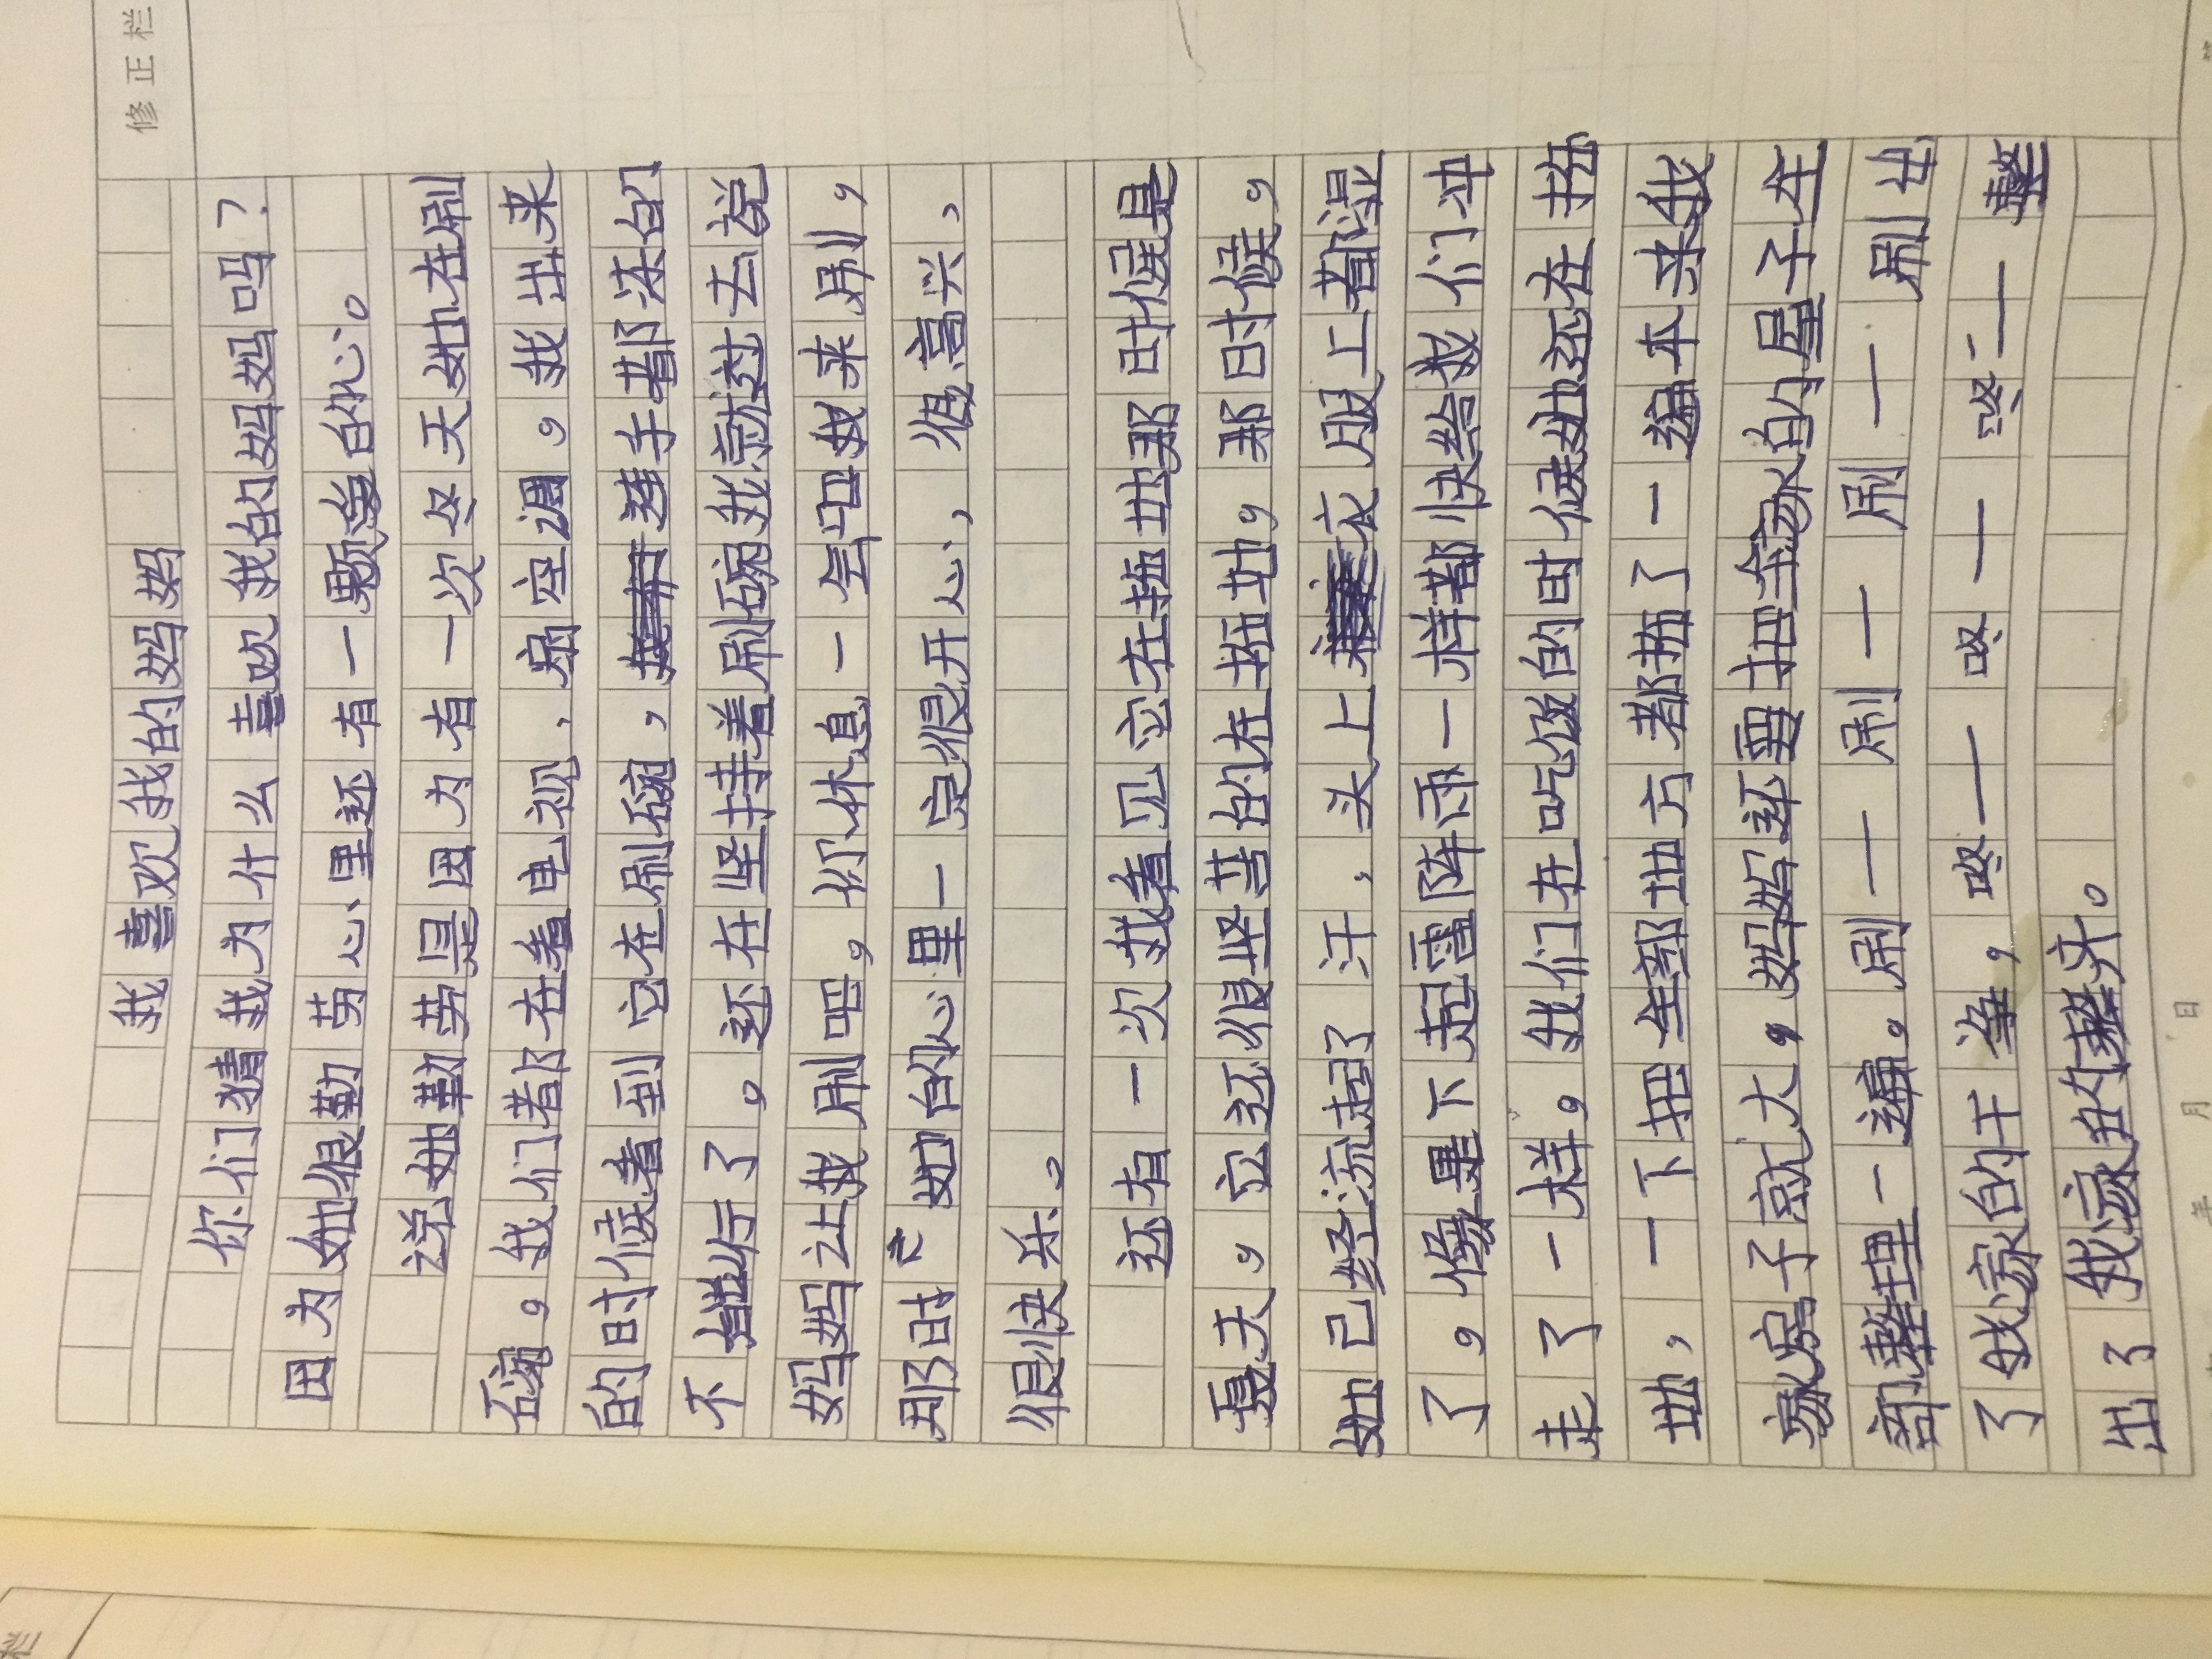 修正栏
我喜欢我的妈妈
你们猜我为什么喜欢我的妈妈吗？
因为她很勤劳心里还有一颗善的心。
说她勤劳是因为有一次冬天她在刷
碗。我们都在看电视，扇空调。我出来
的时候看到它在刷碗，连手都冻的
不行了。还在坚持着刷碗我就过去说
妈妈让我刷吧。你休息一会吧我来刷，
那时她的心里一定很开心，很高兴，
很快乐。
还有一次我看见它在拖地那时候是
夏天。它还很坚苦的在拖地。那时候。
她已经流起了汗，头上衣服上都湿
了，像暴下起雷阵雨一样都快给我们冲
走了一样。我们在吃饭的时候她还在拖
地，一下把全部地方都拖了一遍本来我
家房子就大。妈妈还要把全家的屋子全
部整理一遍。刷—刷—刷—刷出
了我家的干净，咚—咚—咚—整
出了我家的整齐。
年月日
栏